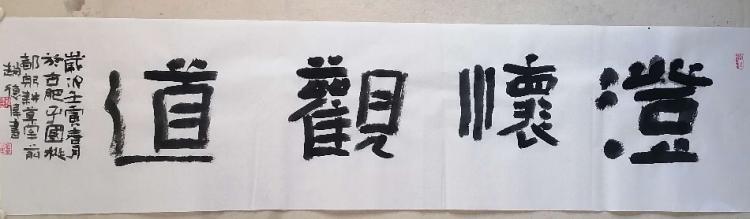 澄懷觀道
歲次壬寅春月
於古肥子國桃
都邨耕草堂前
趙
書